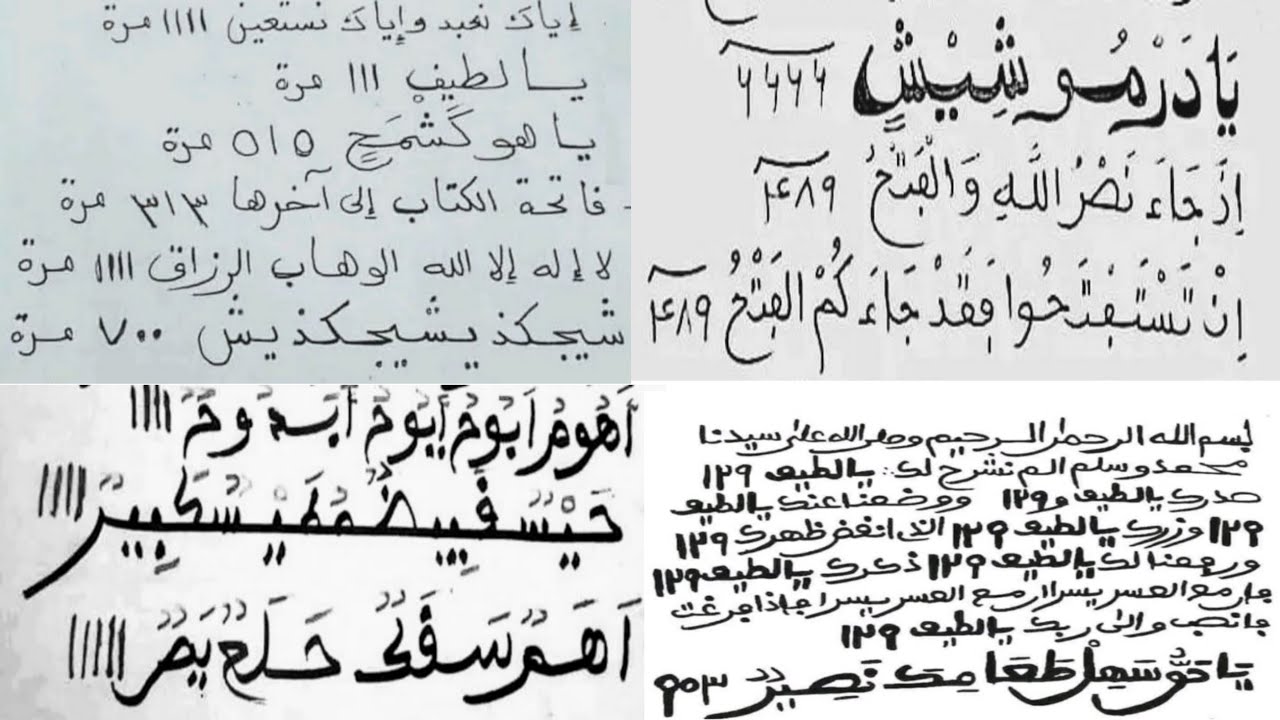 إياك نعبد وإياك نستعين ١١١١ مرة
يا لطيف ١١١ مرة
يا هو كَشمَخٍ ٥١٥ مرة
فاتحة الكتاب إلى آخرها ٣١٣ مرة
لا إله إلا الله الوهاب الرزاق ١١١١ مرة
شيجكذيشيجكذيش ٧٠٠ مرة
يَا دَرْمُو شِيْشٍ ٦٦٦٦
إِذَ جَاءَ نَصْرُ اللَّهِ وَالْفَتْحُ ٤٨٩
إِنْ تَسْتَفْتَحُوا فَقَدْ جَاءَ كُمْ الْفَتْحُ ٤٨٩
اَهُومُ اَبُومُ اَيُومُ اَبَدٌ وَمُ ١١١١
١١١١
اَهَمٌ سَقَكٌ حَلَعٌ يَصٌ ١١١١١
بسم الله الرحمن الرحيم وصلى الله على سيدنا
محمد وسلم الم نشرح لك يا لطيف ١٢٩
صدرك يا لطيف ١٢٩ ووضعنا عنك يا لطيف
١٢٩ وزرك يا لطيف ١٢٩ الذى انقض ظهرك ١٢٩
ورفعنا لك يا لطيف ١٢٩ ذكرك يا لطيف ١٢٩
فان مع العسر يسرا ان مع العسر يسرا فاذا فرغت
فانصب والى ربك يا لطيف ١٢٩
يَا حَقُّ سَهِلْ طَعَامِكَ نَصِيرٌ ٩٠٣